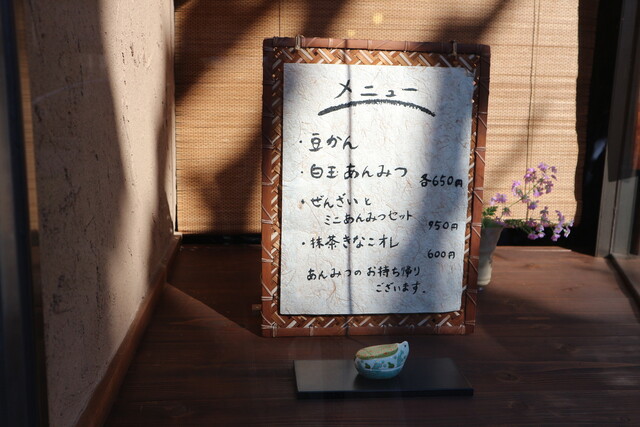 メニュー
・豆かん
・白玉あんみつ 各650円
・ぜんざいと
ミニあんみつセット
950円
・抹茶きなこオレ
600円
あんみつのお持ち帰り
ございます。